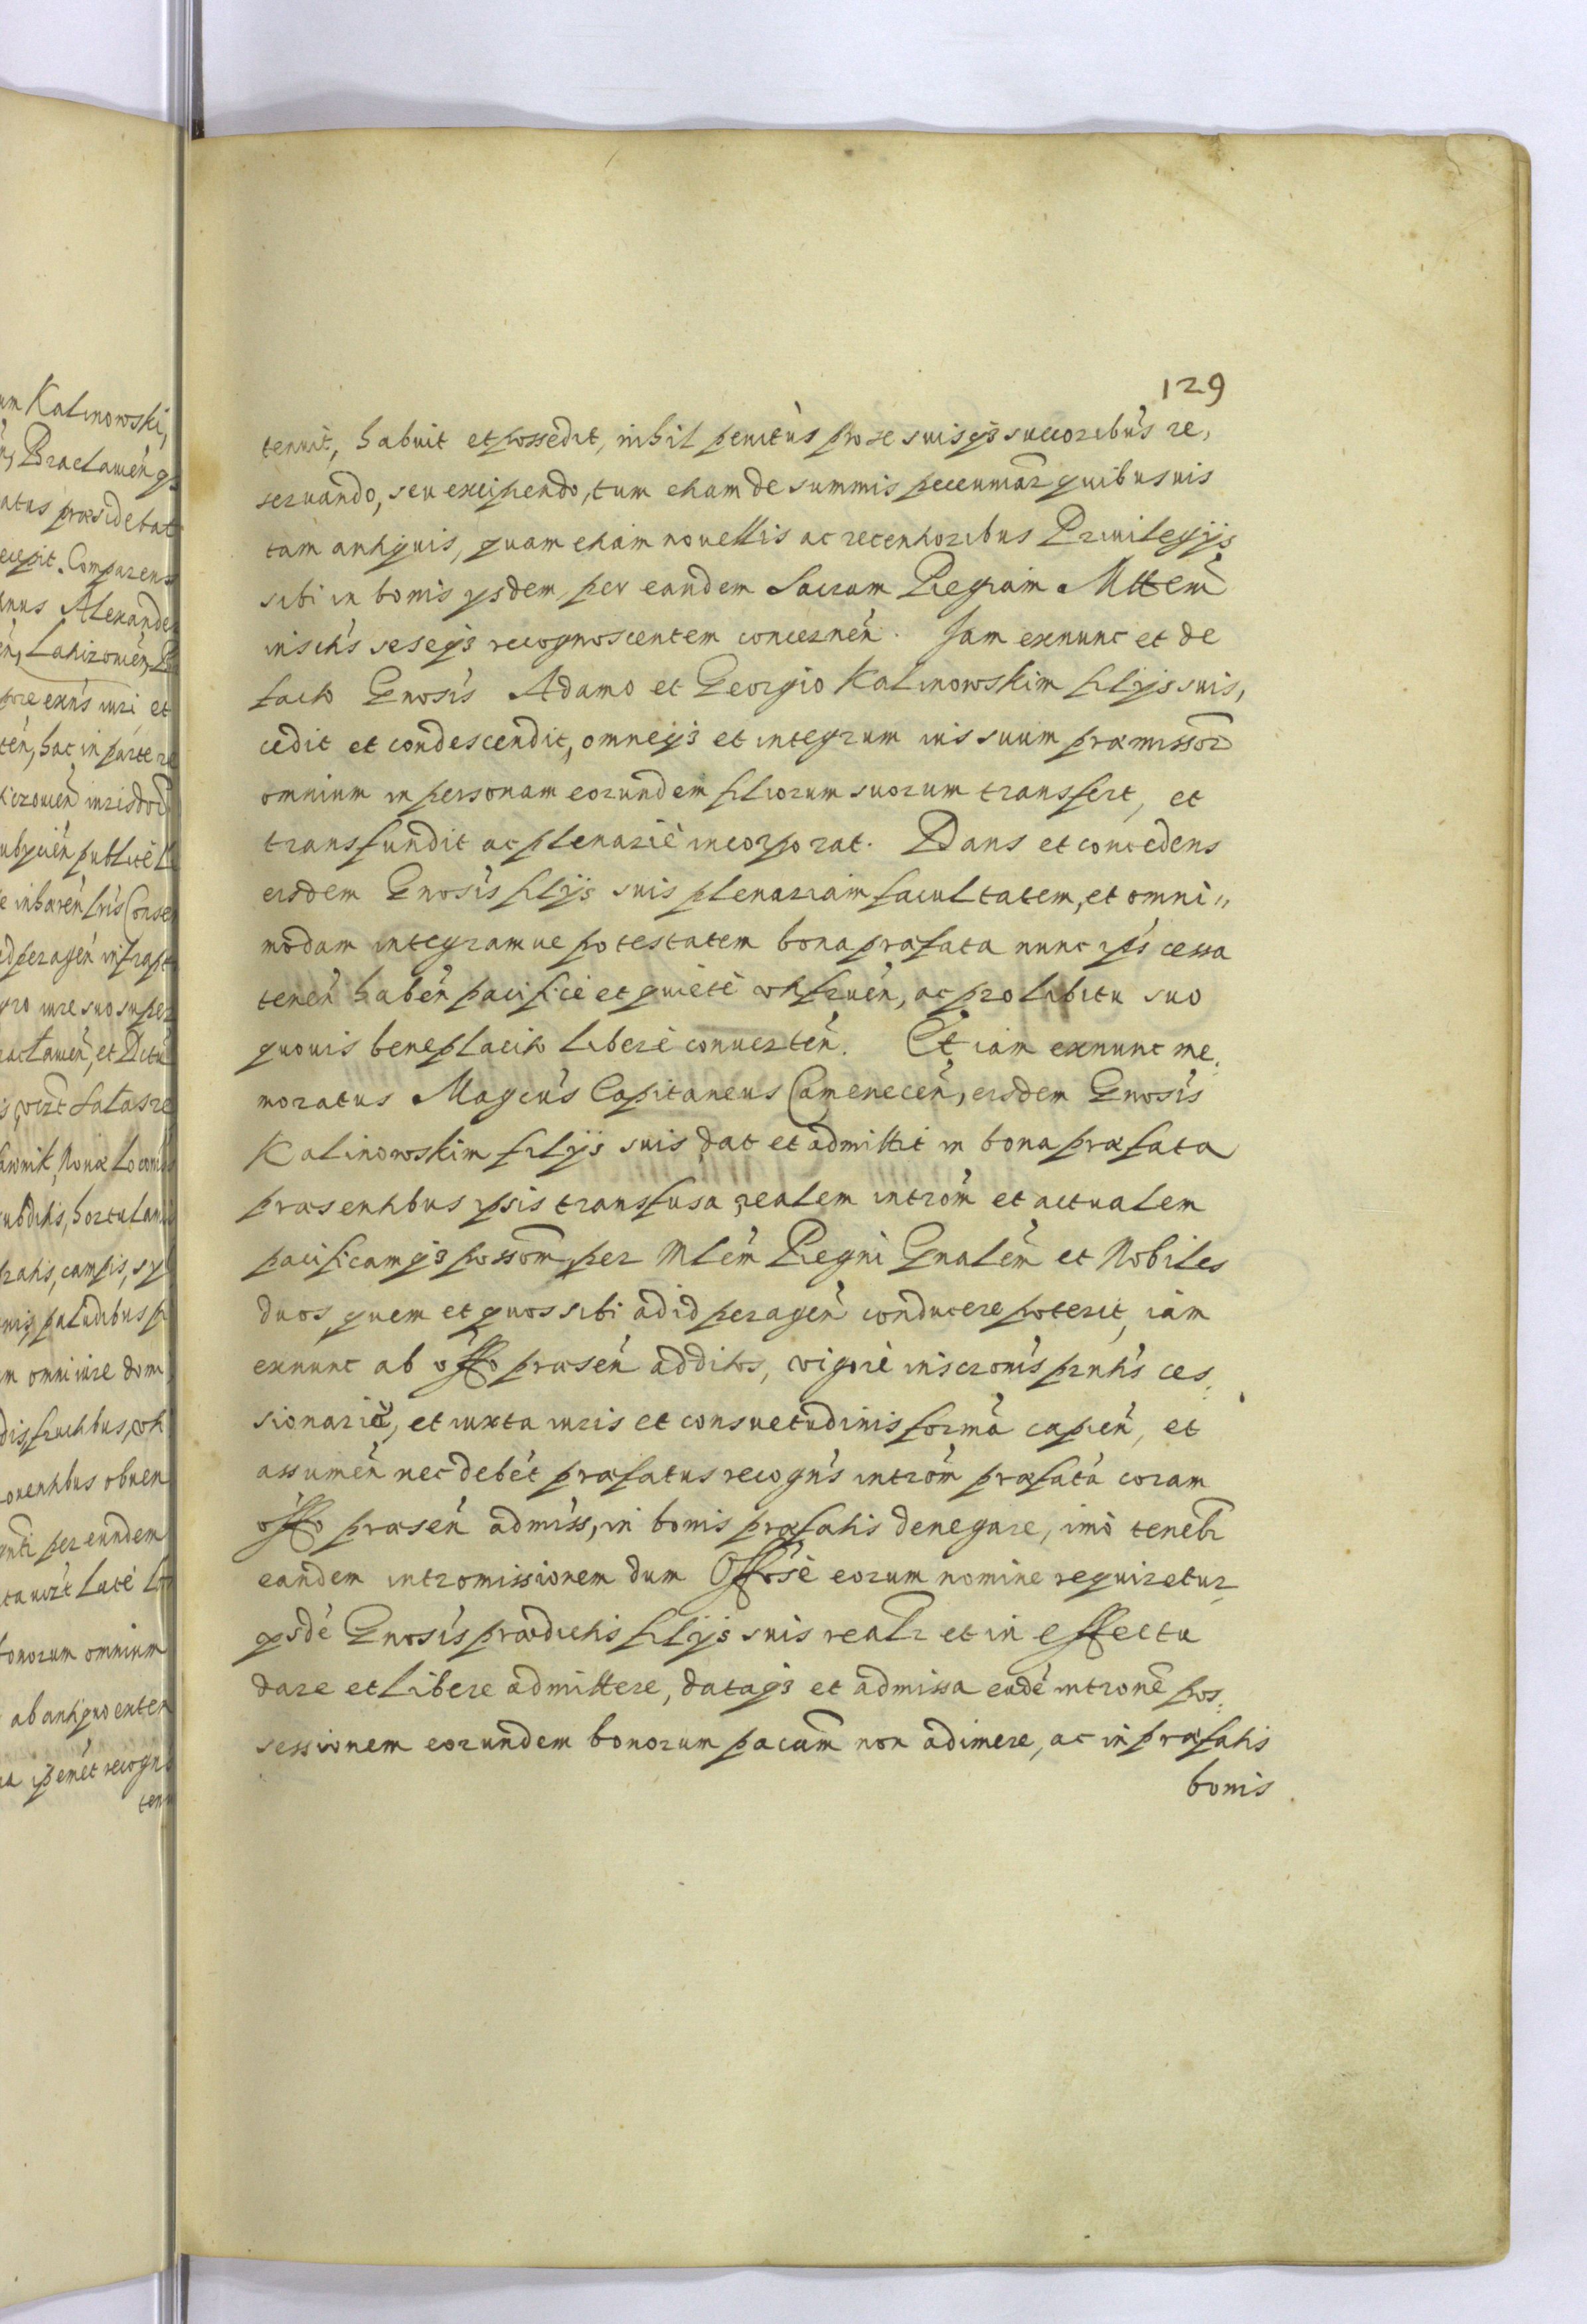 129
tenuit, habuit et possedit, nihil penitus pro se suisq3 succoribus re,
seruando, seu excipiendo, tum etiam de summis pecuniar quibusuis
tam antiquis, quam etiam nouellis ac recentioribus Priuilegijs
sibi in bonis ysdem per eandem Sacram Regiam Mttem
inschs seseq3 recognoscentem concernen. Jam exnunc et de
facto Gnosis Adamo et Georgio Kalinowskim filijs suis,
cedit et condescendit, omneq3 et integrum ius suum præmissor
omnium in personam eorundem filiorum suorum transfert, et
transfundit ac plenarie incorporat. Dans et concedens
eisdem Gnosis filijs suis plenariam facultatem, et omni„
modam integramue potestatem bona præfata nunc ipis cessa
tenen haben pacifice et quiete utifruen, ac pro libitu suo
quouis beneplacito libere conuerten. Et iam exnunc me„
moratus Magcus Capitaneus Camenecen, eisdem Gnosis
Kalinowskim filijs suis dat et admittit in bona præfata
præsentibus ipsis transfusa, realem introm et actualem
pacificamq3 possom per Mlem Regni Gnalem et Nobiles
duos quem et quos sibi ad id peragen conducere poterit, iam
exnunc ab offo præsen additos, vigore inscronis prntis ces„
sionarie, et iuxta iuris et consuetudinis forma capien, et
assumen nec debet præfatus recogns introm præfata coram
offo præsen admiss, in bonis præfatis denegare, imo tenebr
eandem intromissionem dum Offose eorum nomine requiretur
ysde Gnosis prædictis filijs suis realr et in effectu
dare et libere admittere, dataq3 et admissa eade introne pos„
sessionem eorundem bonorum pacam non adimere, ac in præfatis
bonis